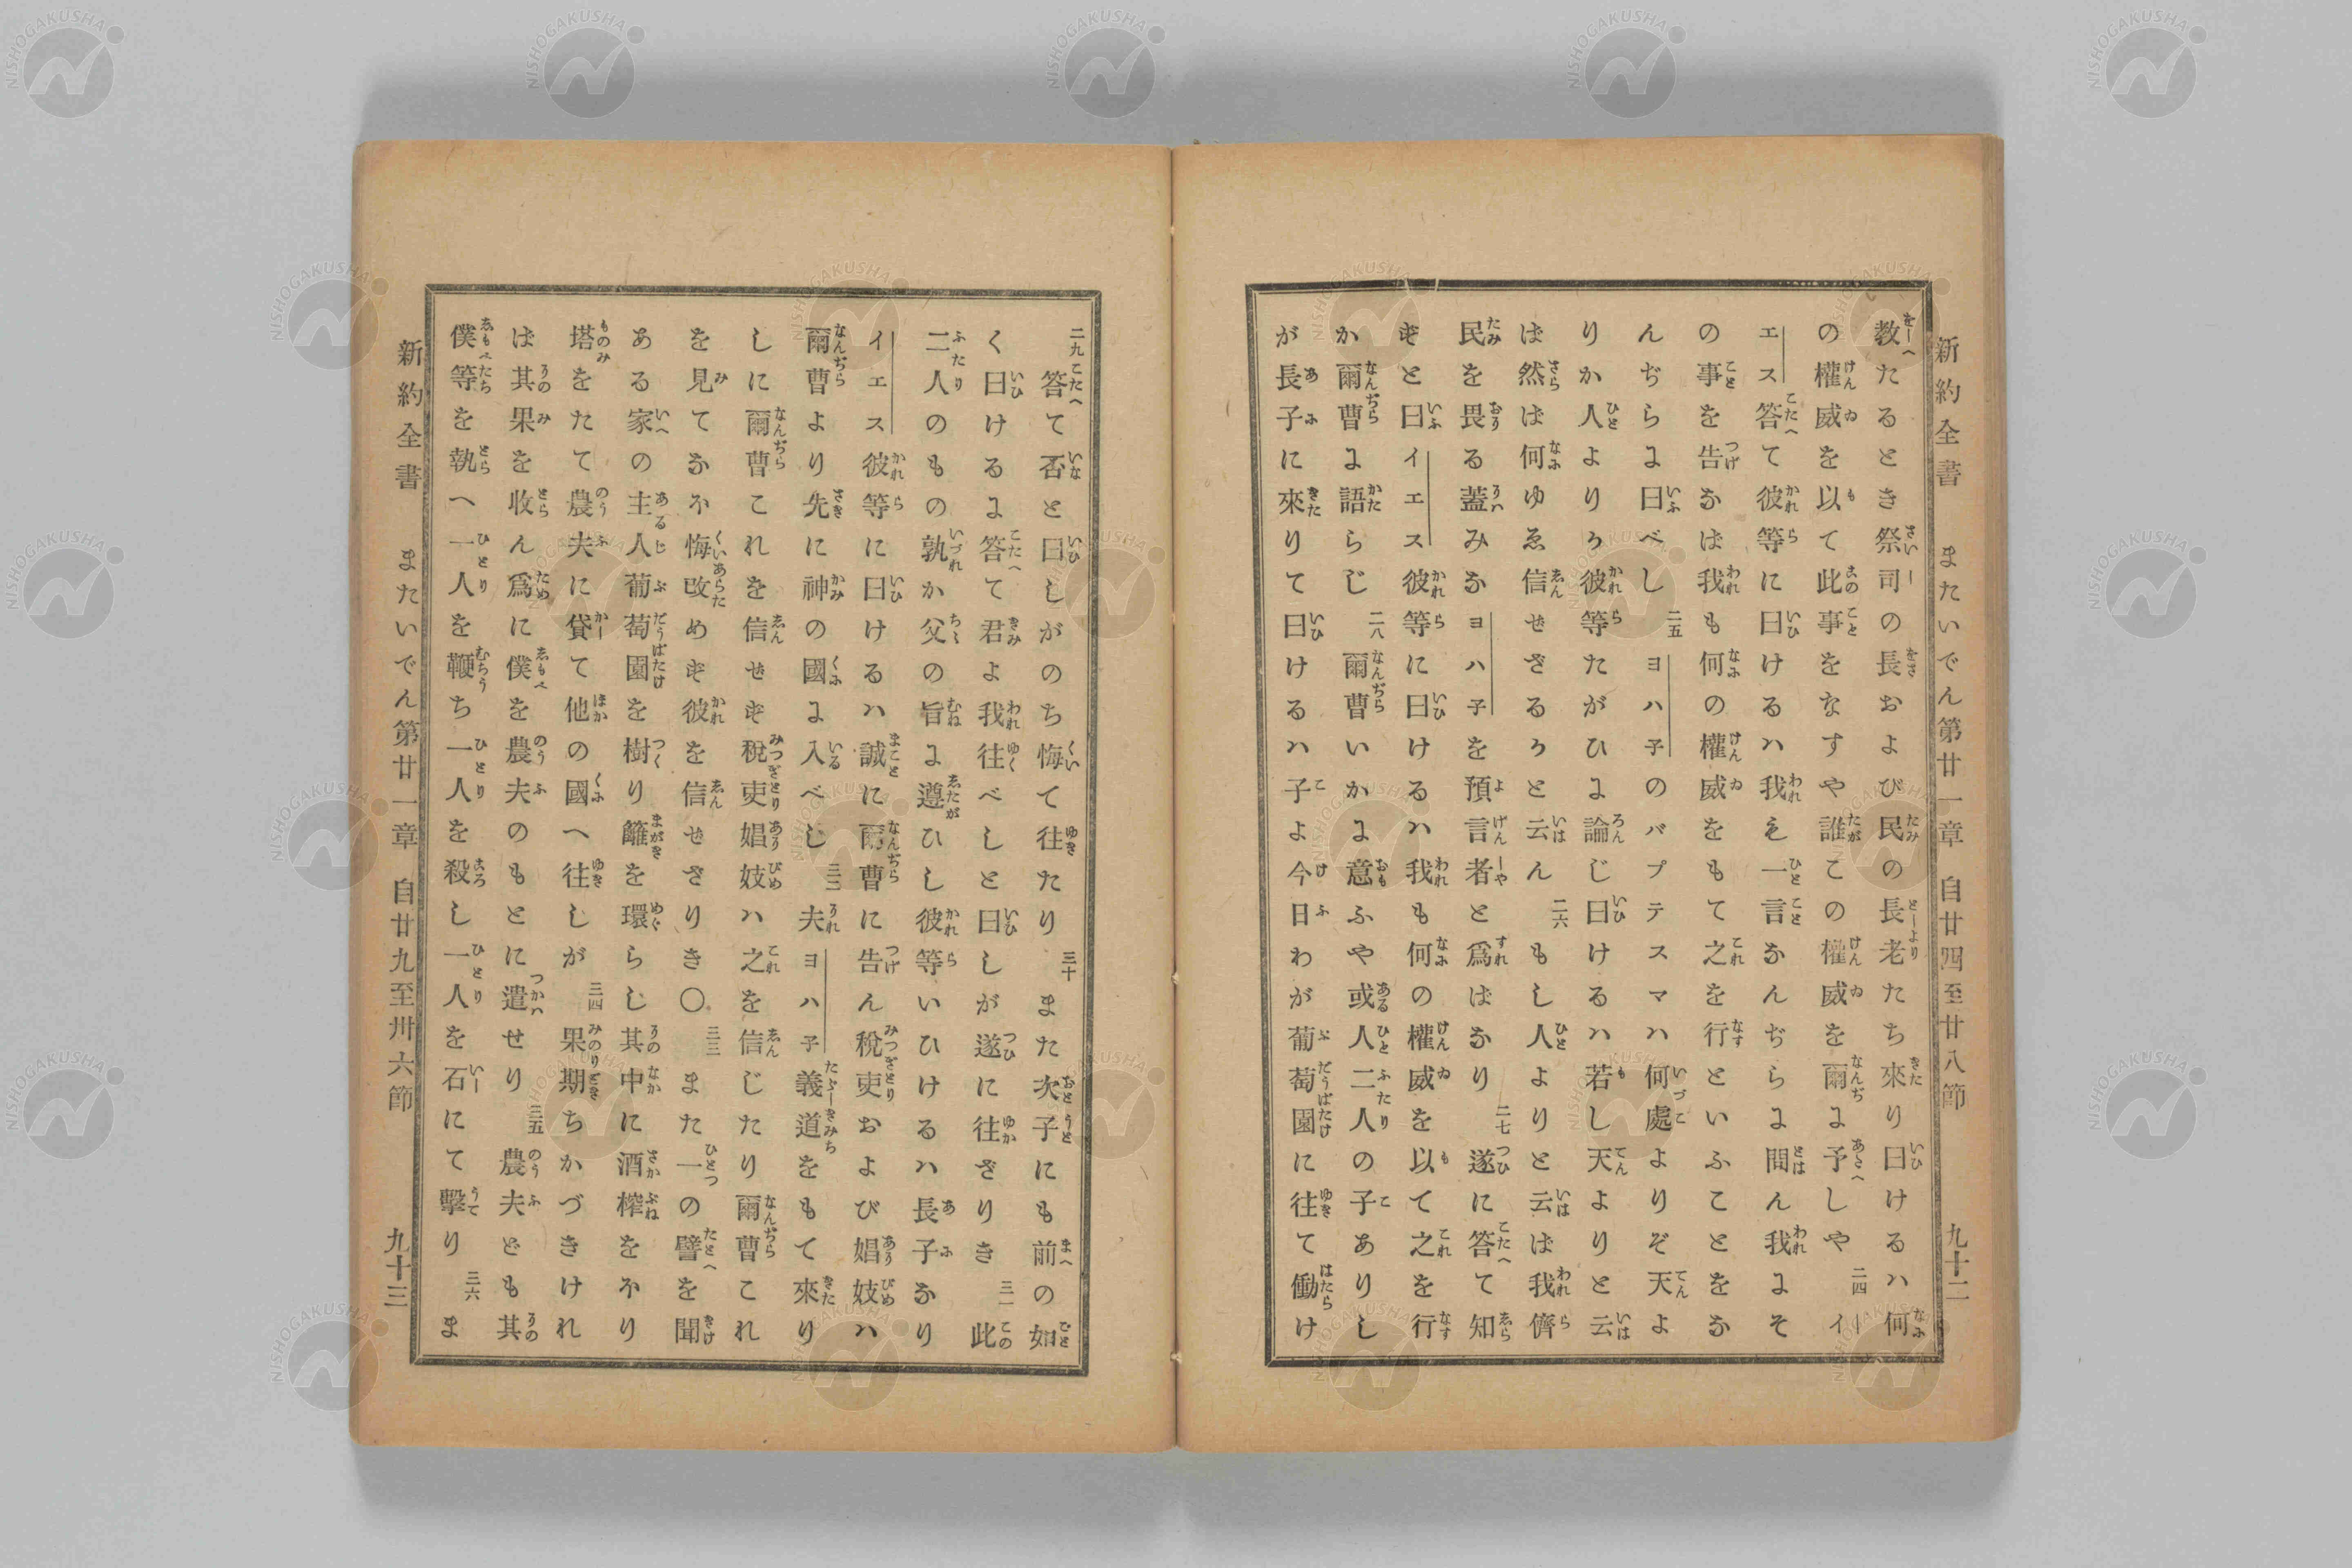 新約全書 またいでん第廿一章 自廿四至廿八節 九十二
教たるとき祭司の長および民の長老たち來り曰けるハ何
の權威を以て此事をなすや誰この權威を爾に予しや 二四 イ
エス答て彼等に曰けるハ我も一言なんぢらに問ん我にそ
の事を告なは我も何の權威をもて之を行といふことをな
んぢらに曰べし 二五 ヨハ子のバプテスマハ何處よりぞ天よ
りか人よりか彼等たがひに論じ曰けるハ若し天よりと云
ば然ば何ゆゑ信せざるかと云ん 二六 もし人よりと云ば我儕
民を畏る蓋みなヨハ子を預言者と爲ばなり 二七 遂に答て知
ずと曰イエス彼等に曰けるハ我も何の權威を以て之を行
か爾曹に語らじ 二八 爾曹いかに意ふや或人二人の子ありし
が長子に來りて曰けるハ子よ今日わが葡萄園に往て働け
二九 答て否と曰しがのち悔て往たり 三十 また次子にも前の如
く曰けるに答て君よ我往べしと曰しが遂に往ざりき 三一 此
二人のもの孰か父の旨に遵ひし彼等いひけるハ長子なり
イエス彼等に曰けるハ誠に爾曹に告ん稅吏および娼妓ハ
爾曹より先に神の國に入べし 三二 夫ヨハ子義道をもて來り
しに爾曹これを信せず稅吏娼妓ハ之を信じたり爾曹これ
を見てなほ悔改めず彼を信せざりき〇 三三 また一の譬を聞け
ある家の主人葡萄園を樹り籬を環らし其中に酒榨をほり
塔をたて農夫に貸て他の國へ往しが 三四 果期ちかづきけれ
ば其果を收ん爲に僕を農夫のもとに遣せり 三五 農夫ども其
僕等を執へ一人を鞭ち一人を殺し一人を石にて擊り 三六 ま
新約全書 またいでん第廿一章 自廿九至卅六節 九十三
NISHOGAKUSHA